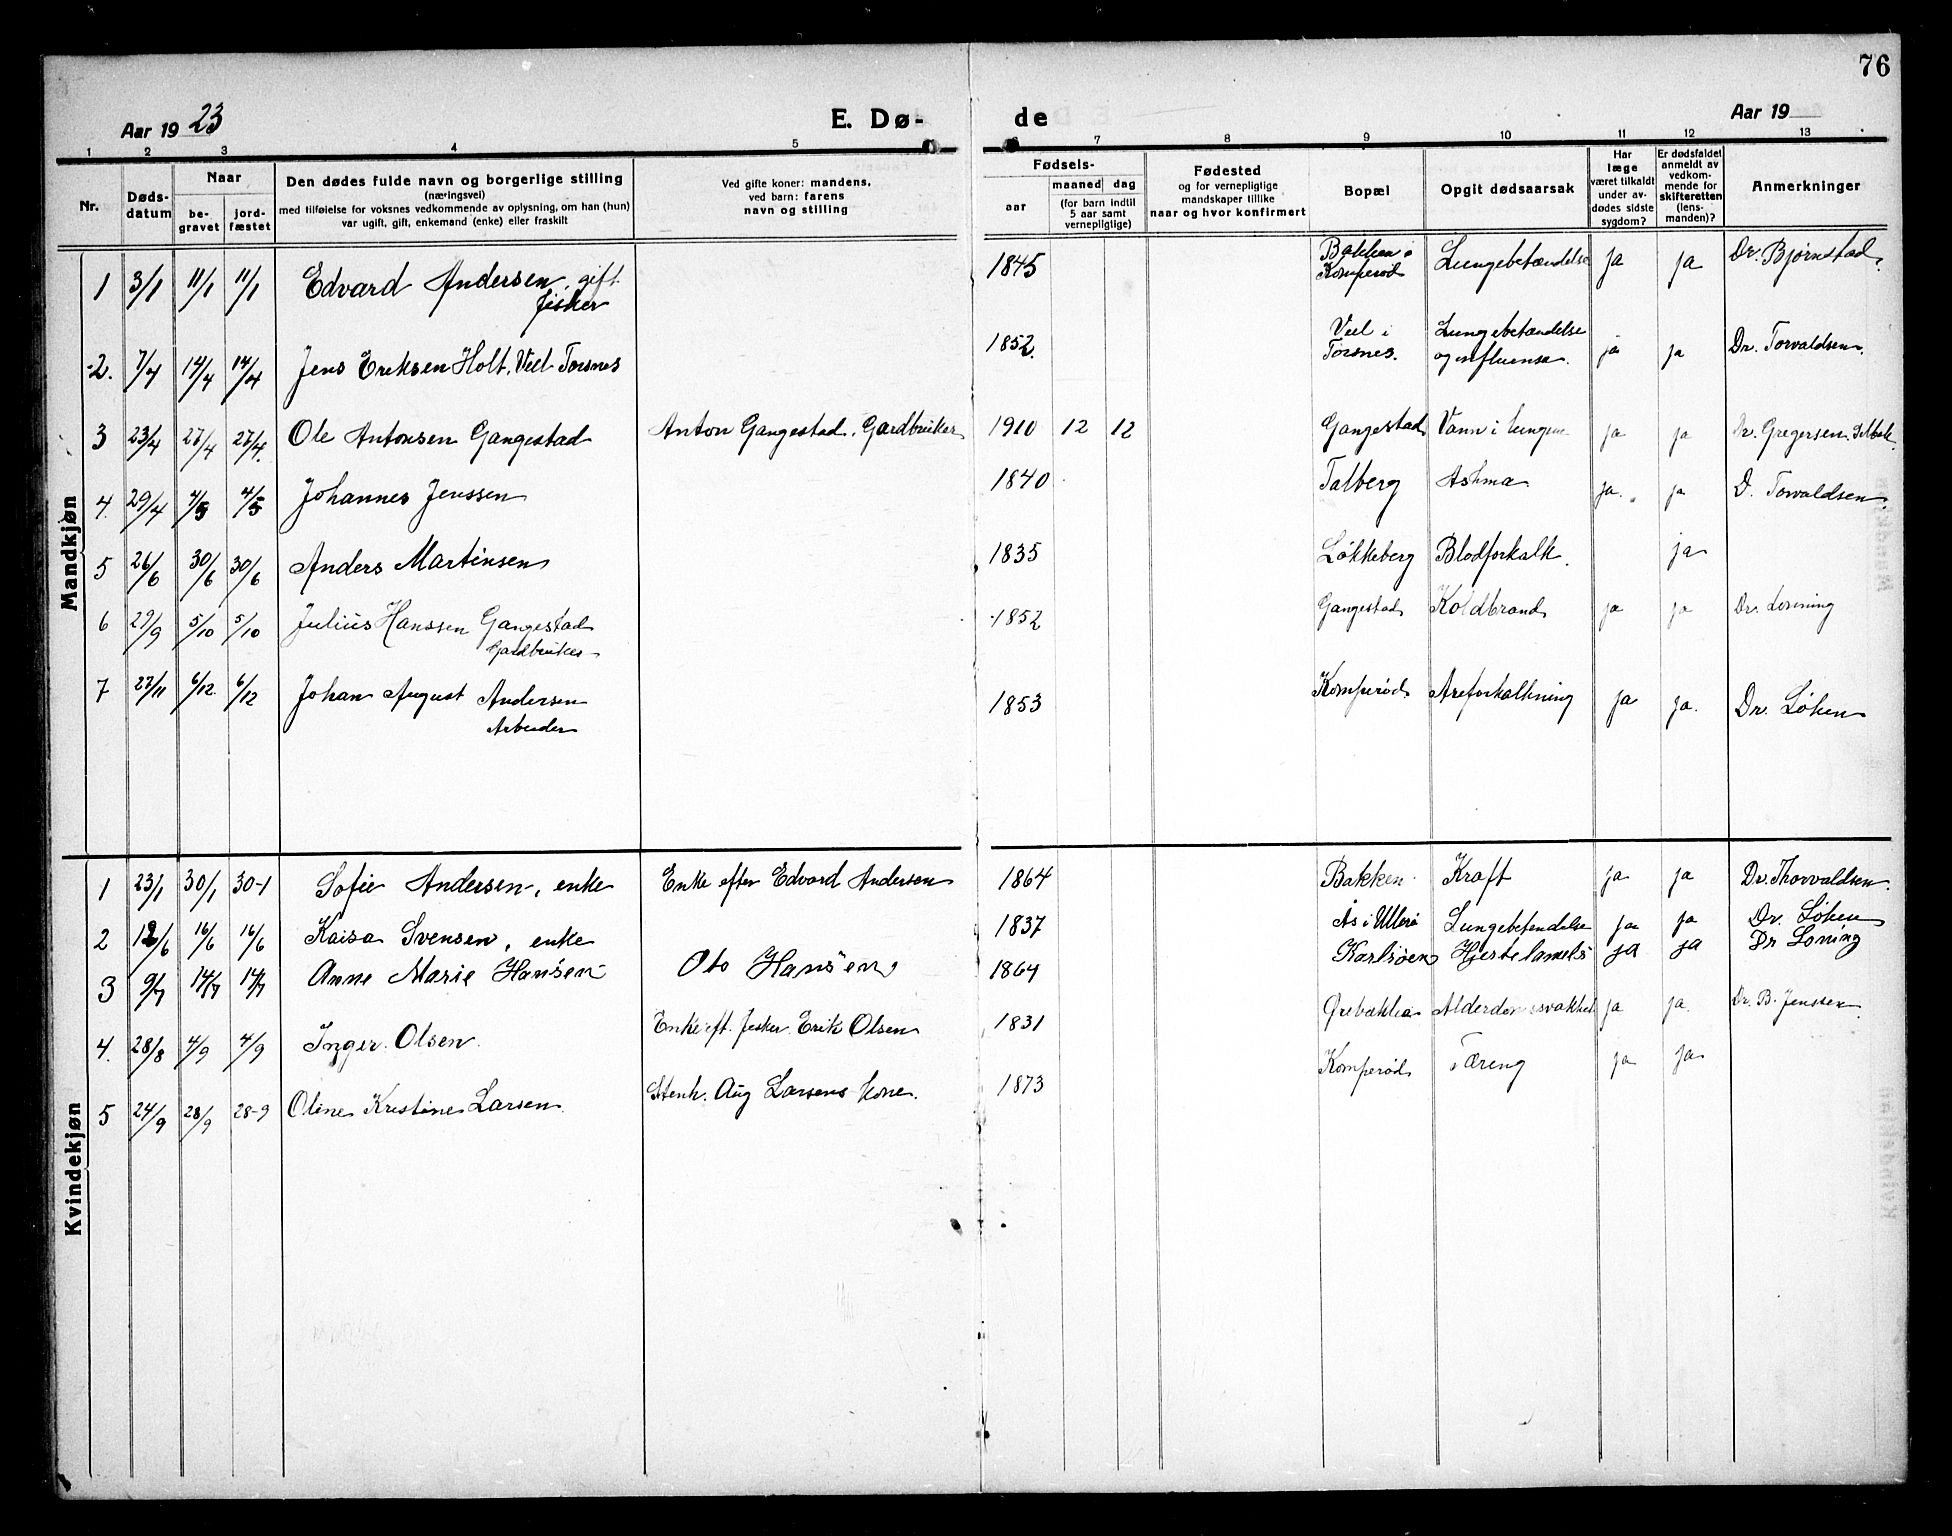 76
Aar 1923 E. Dø- de Aar 19
1 2 3 4 5 6 7 8 9 10 11 12 13
Nr.
Døds-
datum
Naar
be-
gravet
jord-
fæstet
Den dødes fulde navn og borgerlige stilling
(næringsvei)
med tilføielse for voksnes vedkommende av oplysning, om han (hun)
var ugift, gift, enkemand (enke) eller fraskilt
Ved gifte koner: mandens,
ved barn: farens
navn og stilling
Fødsels-
aar
maaned dag
(for barn indtil
5 aar samt
vernepligtige)
Fødested
og for vernepligtige
mandskaper tillike
naar og hvor konfirmert
Bopæl
Opgit dødsaarsak
Har
læge
været tilkaldt
under av-
dødes sidste
sygdom?
Er dødsfaldet
anmeldt av
vedkom-
mende for
skifteretten
(lens-
manden)?
Anmerkninger
Mandkjøn
1 3/1 11/1 11/1 Edvard Andersen, gift 1845 Bakken i Lungebetændelse ja ja Dr. Bjørnstad.
fisker Komperød
2. 7/4 14/4 14/4 Jens Eriksen Holt, Veel Torsnes 1852. Veel i Lungebetændelse ja ja Dr. Torvaldsen.
Torsnes. og influensa.
3 23/4 27/4 27/4. Ole Antonsen Gangestad Anton Gangestad, Gardbruker 1910 12 12 Gangestad Vann i lungene ja ja Dr. Gregersen
4. 29/4 4/5 4/5 Johannes Jenssen 1840 Talberg Asthma ja. ja D. Torvaldsen
5 26/6 30/6 30/6 Anders Martinsen 1835 Løkkeberg Blodforkalk. ja
6 29/9 5/10 5/10 Julius Hanssen Gangestad 1852 Gangestad Koldbrand ja ja Dr.
Gardbruker
7 27/11 6/12 6/12 Johan August Andersen 1853 Komperød Areforkalkning ja ja. Dr. Løken
Arbeider
Kvindekjøn
1 23/1 30/1 30-1 Sofie Andersen, enke Enke efter Edvard Andersen 1864 Bakken Kræft ja ja Dr. Thorvaldsen.
2 12/6 16/6 16/6 Kaisa Svensen, enke 1837 Ås i Ullerø Lungebetendelse ja ja Dr. Løken
3 9/7 14/7 14/7 Anne Marie Hansen Oto Hansen 1864 Karlsøen Hjertelamels ja ja Dr Loning
4. 28/8 4/9 4/9 Inger Olsen. Enke eft. fisker Erik Olsen 1831 Ørebækkia Alderdomssvakket ja ja. Dr. B. Jenssen
5 24/9 28/9 28-9 Oline Kristine Larsen. Stenh. Aug Larsens kone. 1873 Komperød Tæreng ja ja